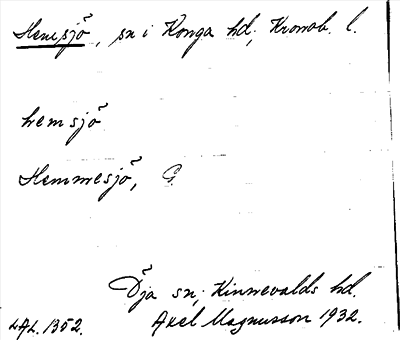 Hemsjö, sn i Konga hd, Kronob. l.
hemsjö
Hemmesjö, G.
Öja sn, Kinnevalds hd.
LAL. 1352. Axel Magnusson 1932.